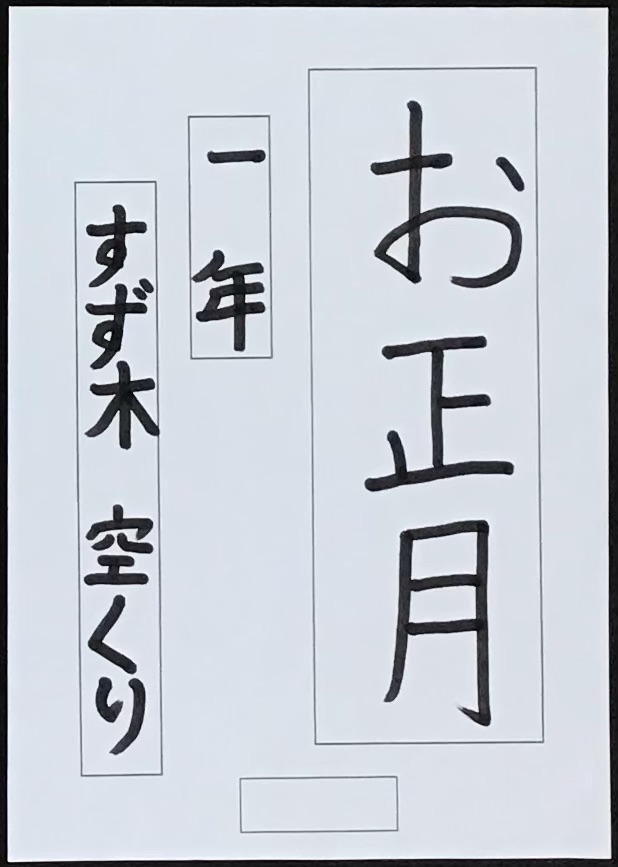 お正月
一年
すず木 空くり